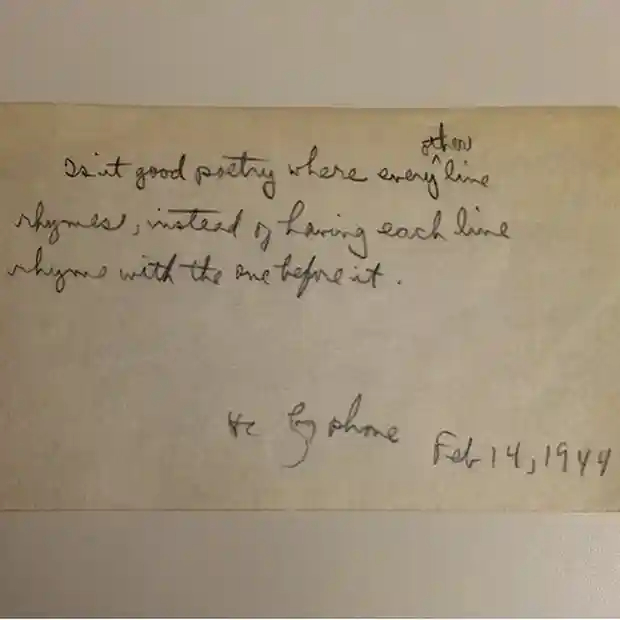 other
Is it good poetry where every^line
rhymes, instead of having each line
rhyme with the one before it.
Hc by phone
Feb 14, 1944